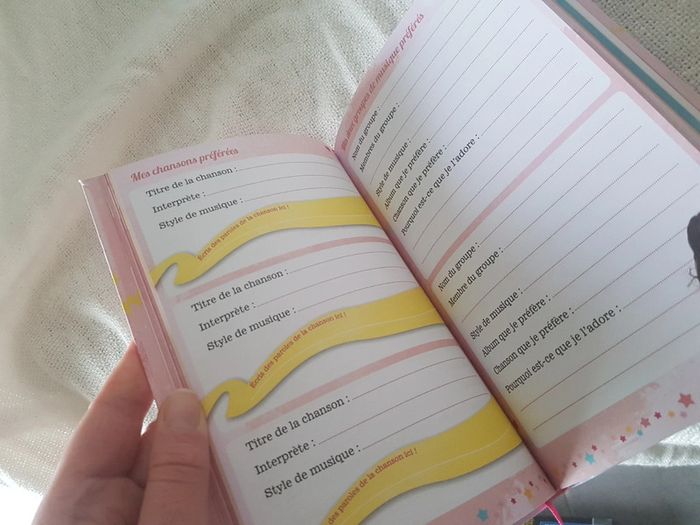 Mes chansons préférées
Titre de la chanson :
Interprète :
Style de musique :
Écris des paroles de la chanson ici !
Titre de la chanson :
Interprète :
Style de musique :
Écris des paroles de la chanson ici !
Titre de la chanson :
Interprète :
Style de musique :
des paroles de la chanson ici !
deux groupes de musique préférés
Nom du groupe :
Membres du groupe :
Style de musique :
Album que je préfère :
Chanson que je préfère :
Pourquoi est-ce que je l'adore :
Nom du groupe :
Membre du groupe :
Style de musique :
Album que je préfère :
Chanson que je préfère :
Pourquoi est-ce que je l'adore :